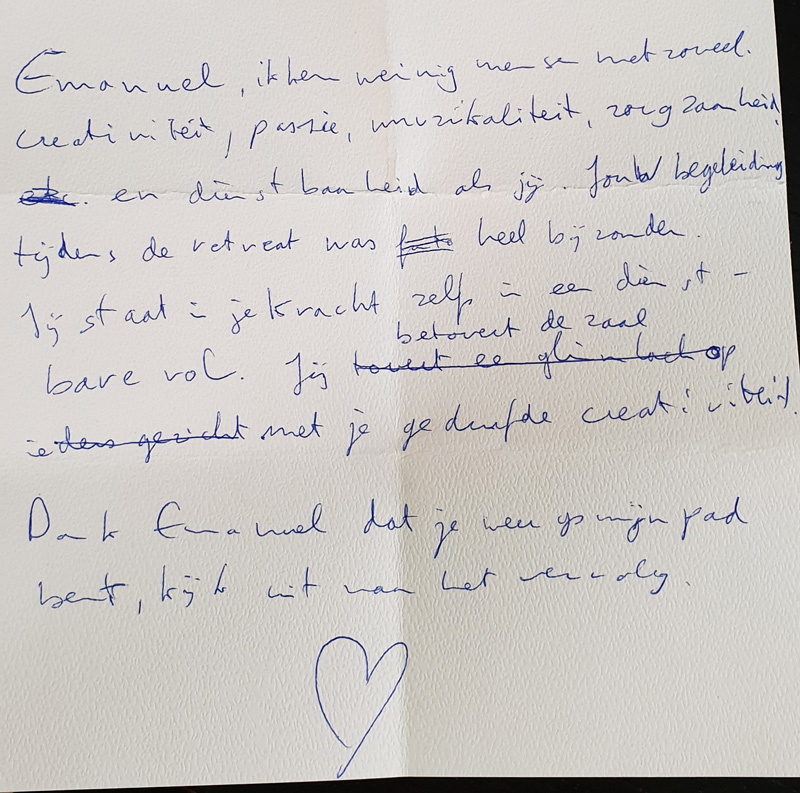 Emanuel, ik ken weinig mense met zoveel.
creativiteit, passie, muzikaliteit, zorgzaamheid,
etc. en dienstbaarheid als jij. Jouw begeleiding
tijdens de retreat was heel bijzonder.
Jij staat in je kracht zelfs in een dienst-
betovert de zaal
bare rol. Jij tovert een glimlach op
ieders gezicht met je gedurfde creativiteit.
Dank Emanuel dat je weer op mijn pad
bent, kijk uit naar het vervolg.